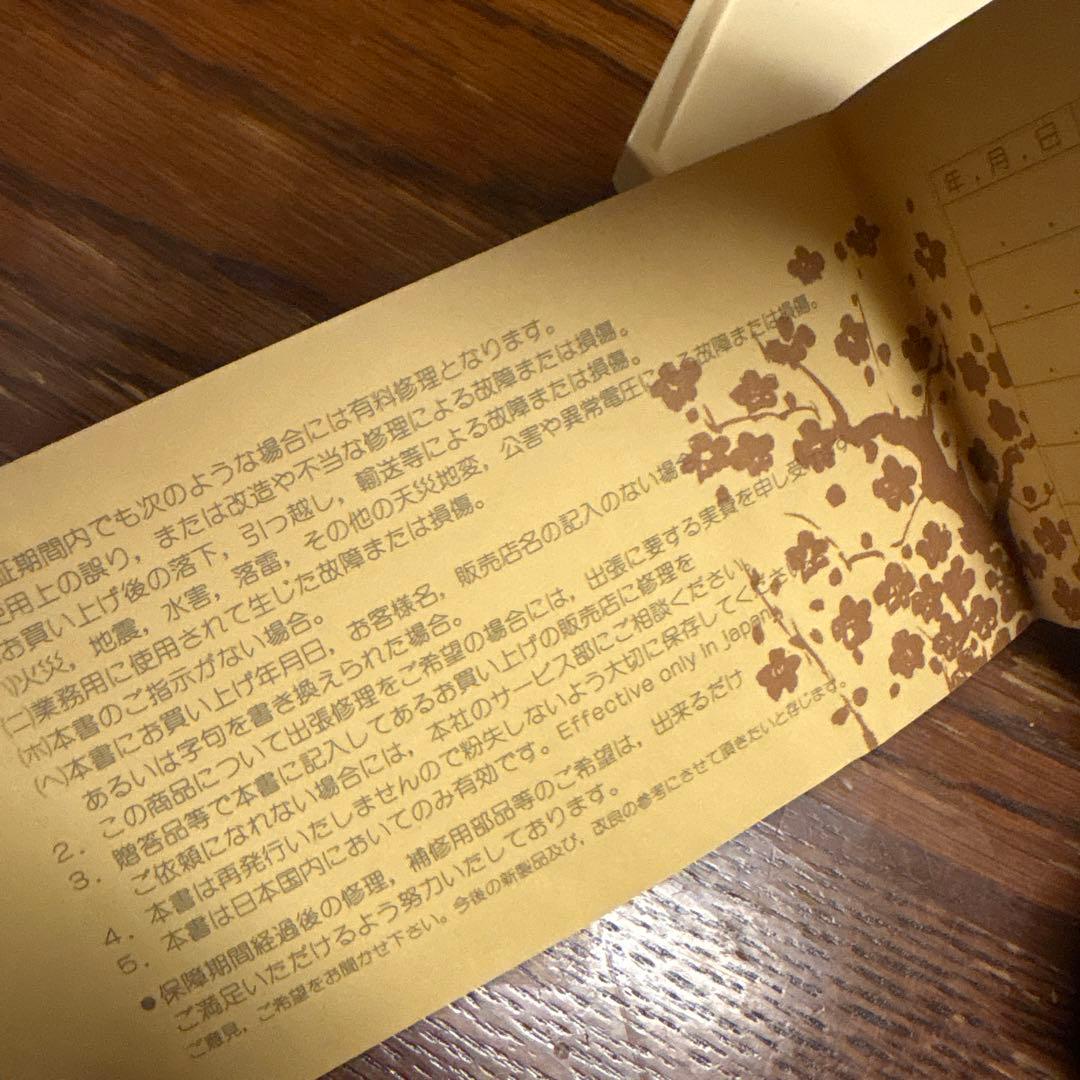 証期間内でも次のような場合には有料修理となります。
使用上の誤り，または改造や不当な修理による故障または損傷。
お買い上げ後の落下，引っ越し，輸送等による故障または損傷。
火災，地震，水害，落雷，その他の天災地変，公害や異常電圧による故障または損傷。
(ニ)業務用に使用されて生じた故障または損傷。
(ホ)本書のご指示がない場合。
(ヘ)本書にお買い上げ年月日，お客様名，販売店名の記入のない場合
あるいは字句を書き換えられた場合。
2. この商品について出張修理をご希望の場合には，出張に要する実費を申し受けます。
3. 贈答品等で本書に記入してあるお買い上げの販売店に修理を
ご依頼になれない場合には，本社のサービス部にご相談ください。
4. 本書は再発行いたしませんので紛失しないよう大切に保存してください
5. 本書は日本国内においてのみ有効です。Effective only in Japan.
●保障期間経過後の修理，補修用部品等のご希望は，出来るだけ
ご満足いただけるよう努力いたしております。
ご意見，ご希望をお聞かせ下さい。今後の新製品及び，改良の参考にさせて頂きたいと存じます。
年．月．日